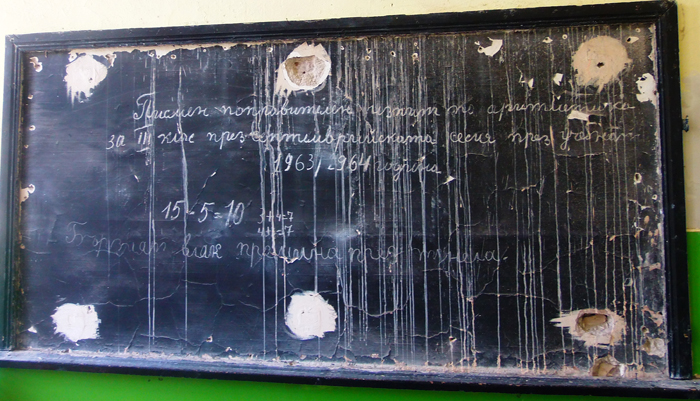 Писмен поправителен изпит по аритметика
за III клас през септемврийската сесия през учебната
1963/1964 година
15-5=10
3+4=7
4+3=7
Бежилият влак премина през тунела.